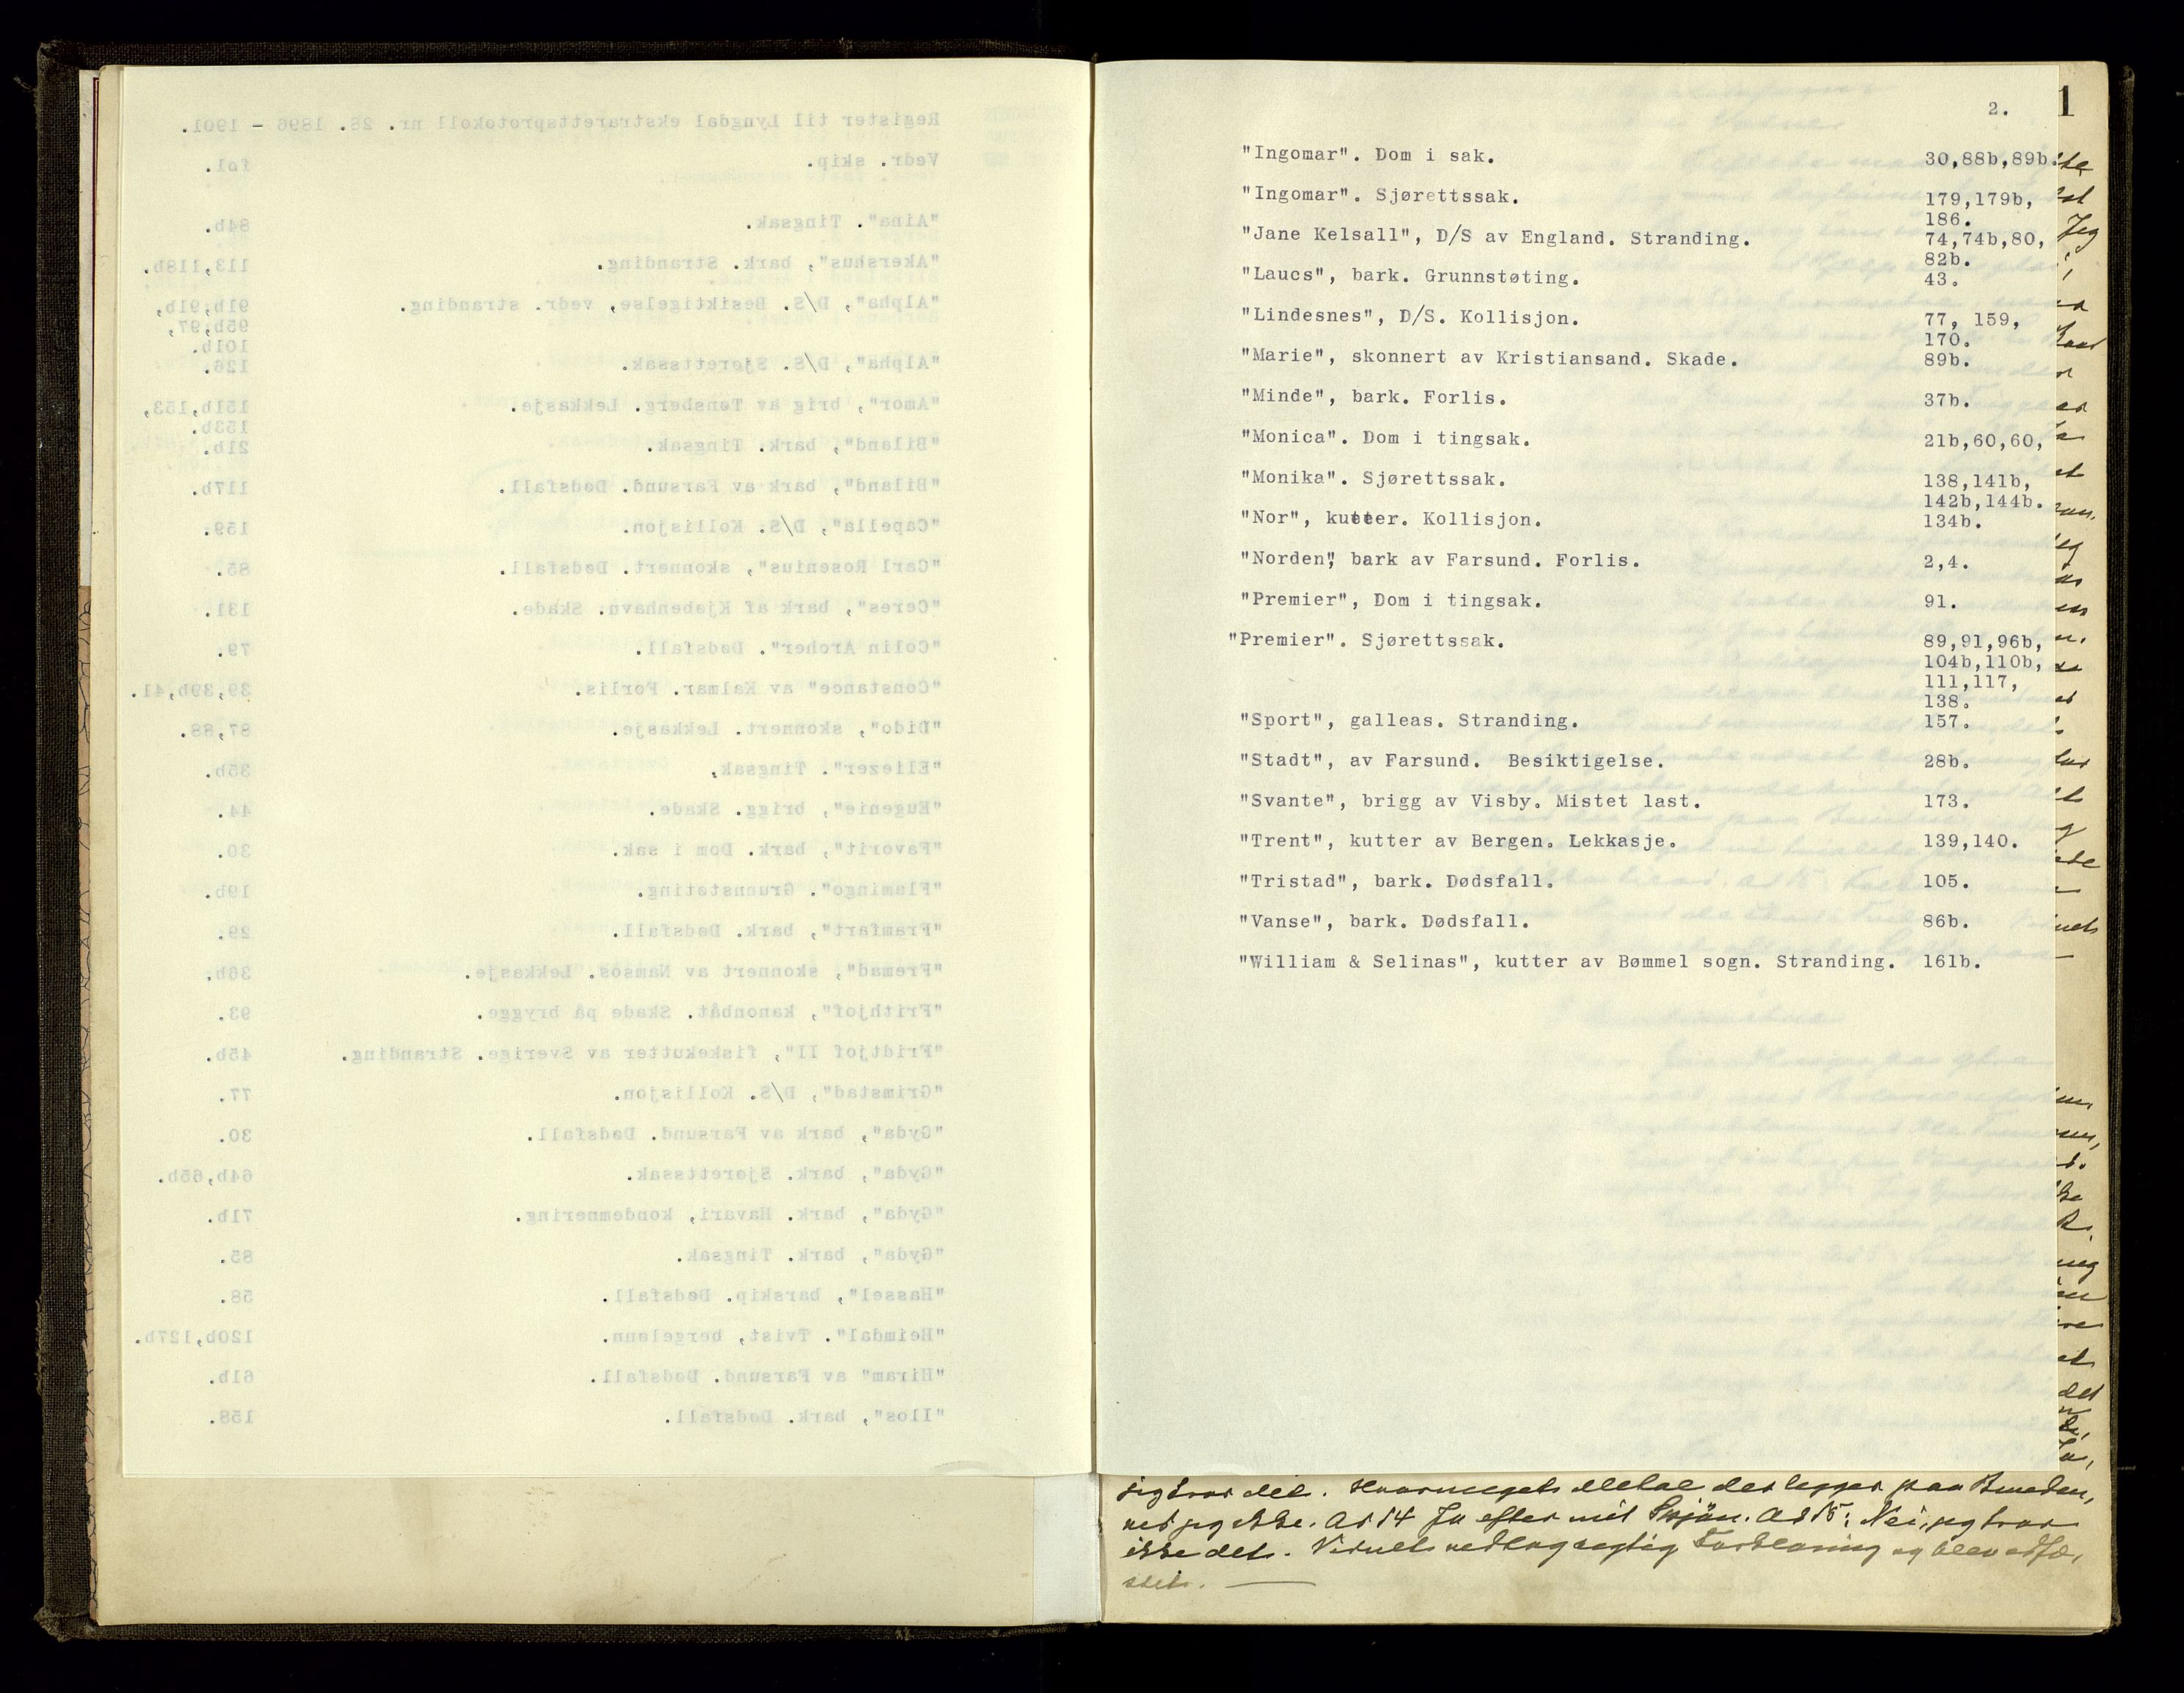 Register til Lyngdal ekstrarettsprotokoll nr. 28. 1896 - 1901.
Vedr. skip. fol.
"Aina". Tingsak. 84b.
"Akershus", bark. Stranding. 113,118b.
"Alpha", D/S. Besiktigelse, vedr. stranding. 91b;91b,
95b;97,
101b.
"Alpha", D/S. Sjørettssak. 126.
"Amor", brig av Tønsberg. Lekkasje. 151b,153,
153b.
"Biland", bark. Tingsak. 21b.
"Biland", bark av Farsund. Dødsfall. 117b.
"Capella", D/S. Kollisjon. 159.
"Carl Rosenius", skonnert. Dødsfall. 85.
"Ceres", bark af Kjøbenhavn. Skade. 131.
"Colin Archer". Dødsfall. 79.
"Constance" av Kalmar. Forlis. 39,39b,41.
"Dido", skonnert. Lekkasje. 87,88.
"Eliezer". Tingsak, 35b.
"Eugenie", brigg. Skade. 44.
"Favorit", bark. Dom i sak. 30.
"Flamingo". Grunnstøting. 19b.
"Framfart", bark. Dødsfall. 29.
"Fremad", skonnert av Namsos. Lekkasje. 36b.
"Frithjof", kanonbåt. Skade på brygge. 93.
"Fridtjof II", fiskekutter av Sverige. Stranding. 45b.
"Grimstad", D/S. Kollisjon. 77.
"Gyda", bark av Farsund. Dødsfall. 30.
"Gyda", bark. Sjørettssak. 64b,65b.
"Gyda", bark. Havari, kondemnering. 71b.
"Gyda", bark. Tingsak. 85.
"Hassel", barskip. Dødsfall. 58.
"Heimdal". Tvist, bergelønn. 120b,127b.
"Hiram" av Farsund. Dødsfall. 61b.
"Ilos", bark. Dødsfall. 158.
2.
1
"Ingomar". Dom i sak. 30,88b,89b.
"Ingomar". Sjørettssak. 179,179b,
186.
"Jane Kelsall", D/S av England. Stranding. 74,74b,80,
82b.
"Laucs", bark. Grunnstøting. 43.
"Lindesnes", D/S. Kollisjon. 77, 159,
170.
"Marie", skonnert av Kristiansand. Skade. 89b.
"Minde", bark. Forlis. 37b.
"Monica". Dom i tingsak. 21b,60,60,
"Monika". Sjørettssak. 138,141b,
142b,144b.
"Nor", kutter. Kollisjon. 134b.
"Norden", bark av Farsund. Forlis. 2,4.
"Premier", Dom i tingsak. 91.
"Premier". Sjørettssak. 89,91,96b,
104b,110b,
111,117,
138.
"Sport", galleas. Stranding. 157.
"Stadt", av Farsund. Besiktigelse. 28b.
"Svante", brigg av Visby. Mistet last. 173.
"Trent", kutter av Bergen. Lekkasje. 139,140.
"Tristad", bark. Dødsfall. 105.
"Vanse", bark. Dødsfall. 86b.
"William & Selinas", kutter av Bømmel sogn. Stranding. 161b.
jeg tror det. Hvormeget Metal der legges paa Bunden,
ved jeg ikke. Ad 14 Ja efter mit Skjøn. Ad 15: Nei, jeg tror
ikke det. Vidnet vedtog rigtig Forklaring og blev